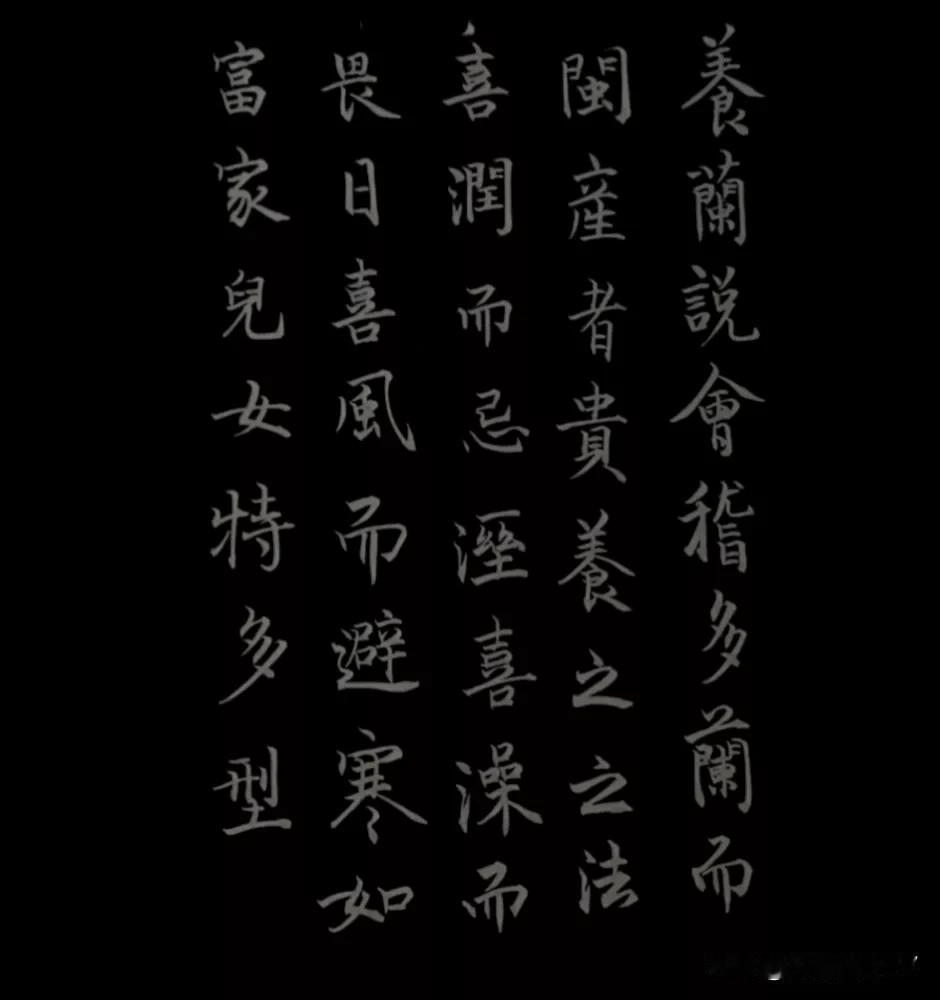 養蘭説會稽多蘭而
閩産者貴養之之法
喜潤而忌溼喜澡而
畏日喜風而避寒如
富家兒女特多型